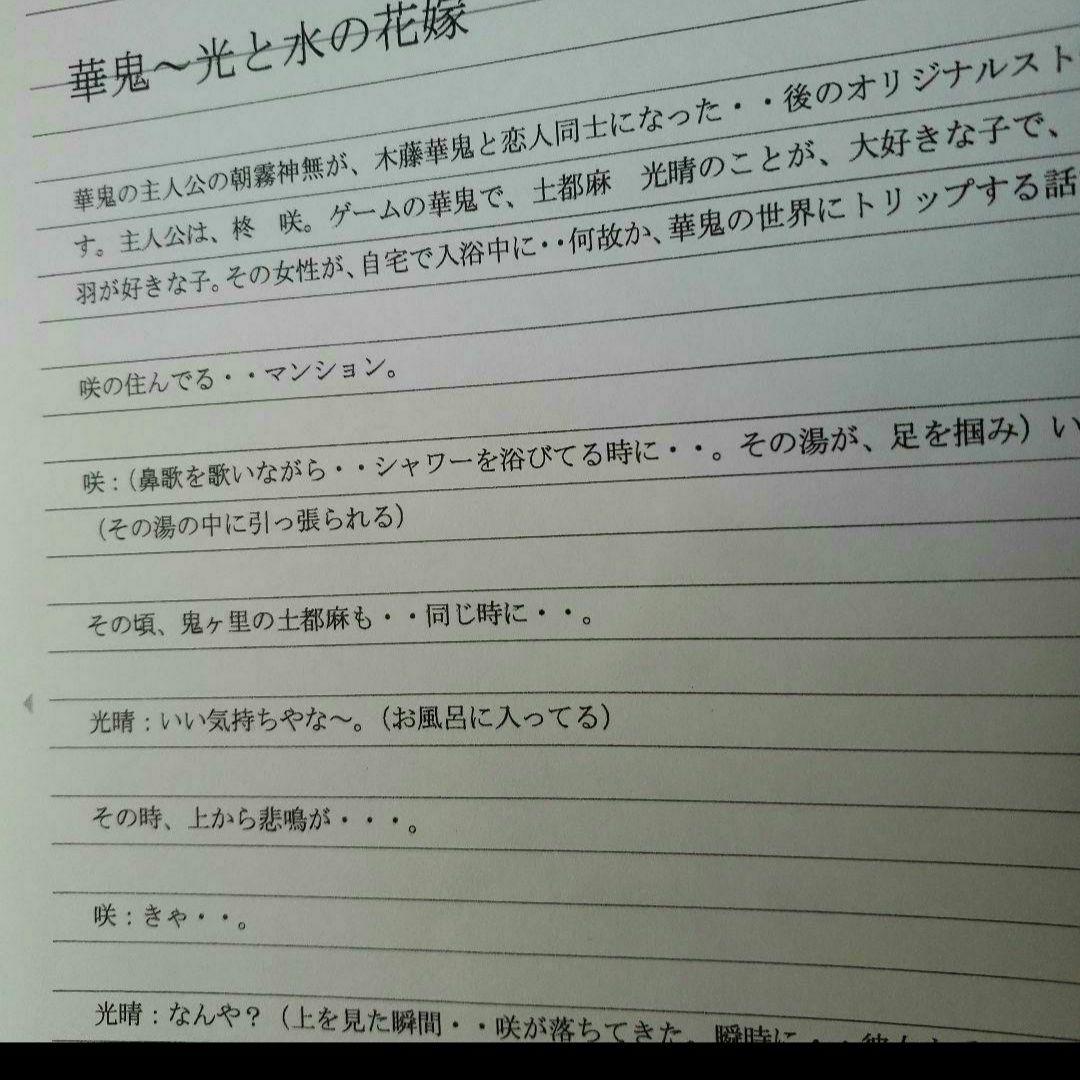 華鬼～光と水の花嫁
華鬼の主人公の朝霧神無が、木藤華鬼と恋人同士になった・・後のオリジナルスト
す。主人公は、柊　咲。ゲームの華鬼で、土都麻　光晴のことが、大好きな子で、
羽が好きな子。その女性が、自宅で入浴中に・・何故か、華鬼の世界にトリップする話
咲の住んでる・・マンション。
咲：（鼻歌を歌いながら・・シャワーを浴びてる時に・・。その湯が、足を掴み）い
（その湯の中に引っ張られる）
その頃、鬼ヶ里の土都麻も・・同じ時に・・。
光晴：いい気持ちやな～。（お風呂に入ってる）
その時、上から悲鳴が・・・。
咲：きゃ・・。
光晴：なんや？（上を見た瞬間・・咲が落ちてきた。瞬時に・・